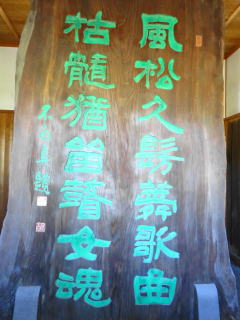 風松久髣舞歌曲
枯髓猶留女魂
題